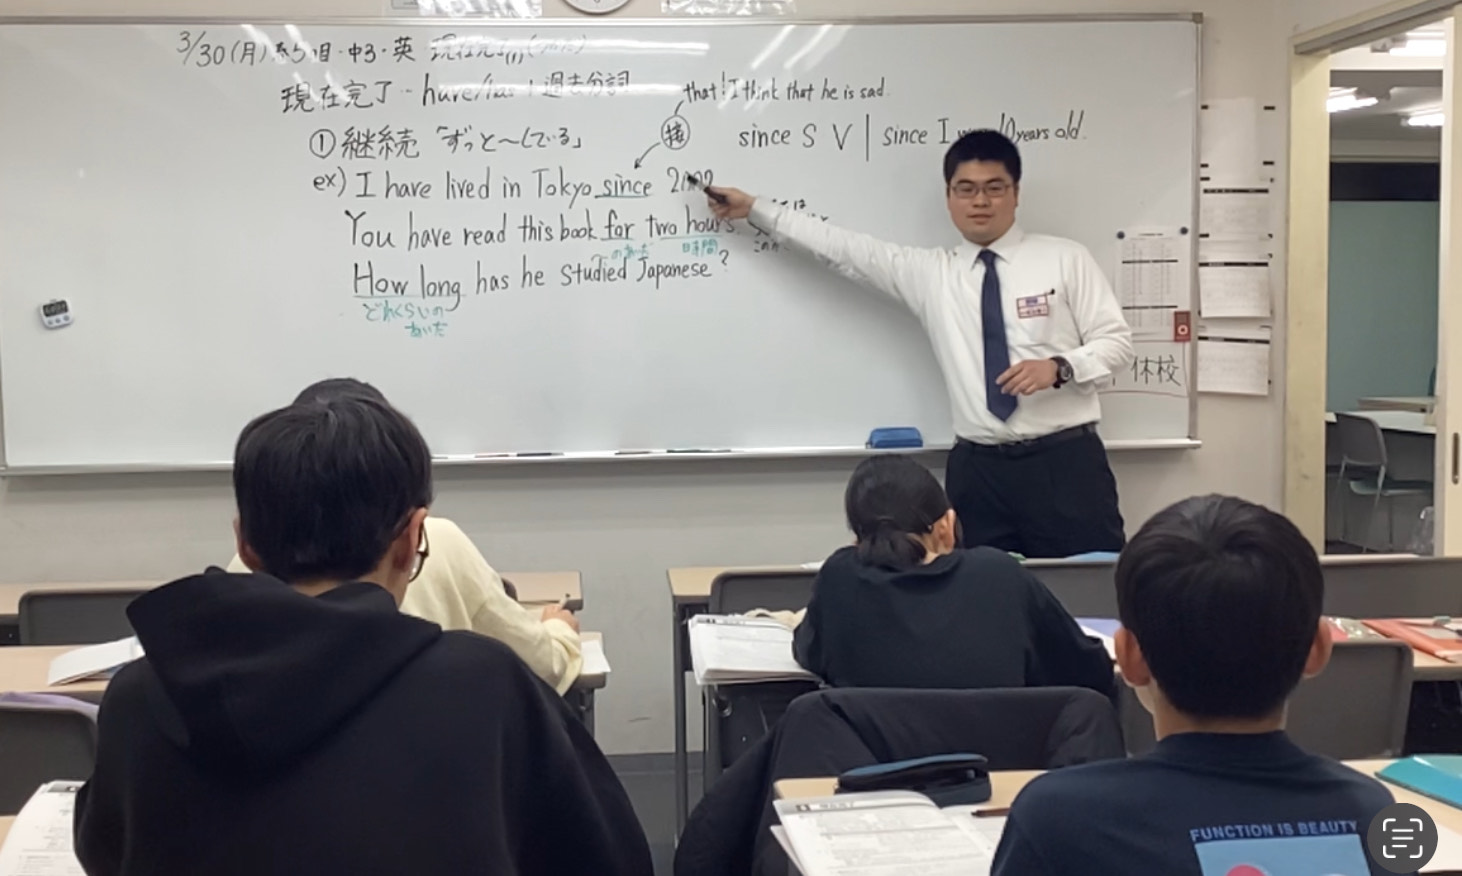 3/30(月) 中3・英 現在完了(1)
現在完了 … have/has + 過去分詞
that! I think that he is sad.
①継続 「ずっと〜している」
接
since S V | since I was 10 years old.
ex) I have lived in Tokyo since
You have read this book for two hours.
のあいだ 時間
How long has he studied Japanese?
どれくらいの
あいだ
休校
FUNCTION IS BEAUTY